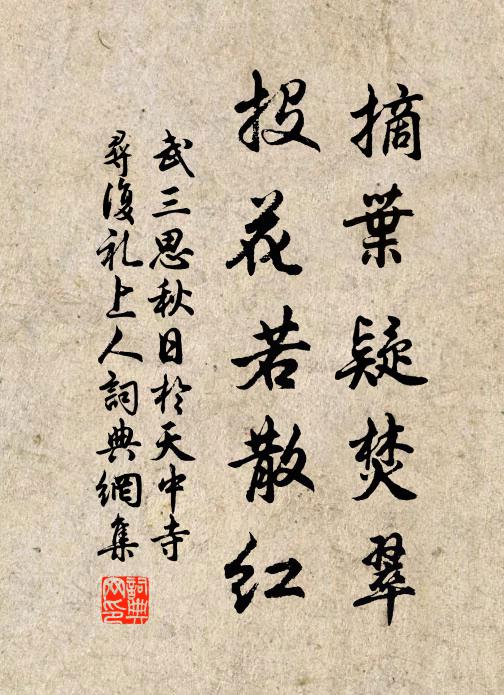 摘葉疑焚翠
投花若散紅
武三思秋日於天中寺
尋復礼上人詞典網集
詞典網印